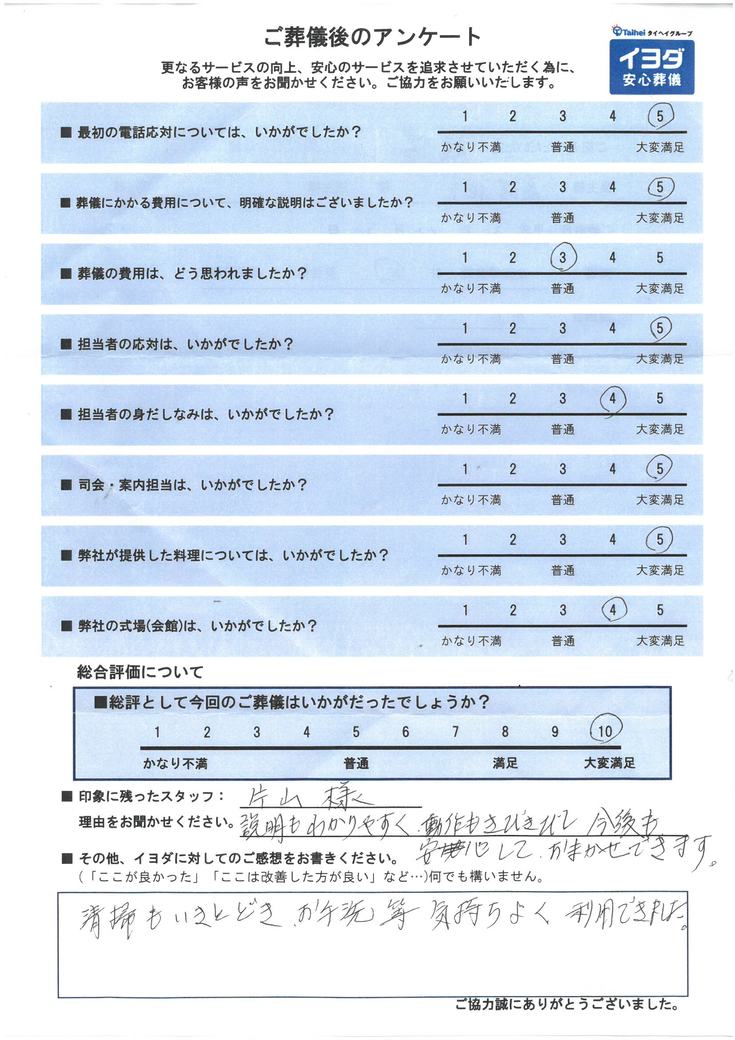 ご葬儀後のアンケート
Taihei タイヘイグループ
イヨダ
安心葬儀
更なるサービスの向上、安心のサービスを追求させていただく為に、
お客様の声をお聞かせください。ご協力をお願いいたします。
■ 最初の電話応対については、いかがでしたか？
1 2 3 4 5
かなり不満 普通 大変満足
■ 葬儀にかかる費用について、明確な説明はございましたか？
1 2 3 4 5
かなり不満 普通 大変満足
■ 葬儀の費用は、どう思われましたか？
1 2 3 4 5
かなり不満 普通 大変満足
■ 担当者の応対は、いかがでしたか？
1 2 3 4 5
かなり不満 普通 大変満足
■ 担当者の身だしなみは、いかがでしたか？
1 2 3 4 5
かなり不満 普通 大変満足
■ 司会・案内担当は、いかがでしたか？
1 2 3 4 5
かなり不満 普通 大変満足
■ 弊社が提供した料理については、いかがでしたか？
1 2 3 4 5
かなり不満 普通 大変満足
■ 弊社の式場(会館)は、いかがでしたか？
1 2 3 4 5
かなり不満 普通 大変満足
総合評価について
■総評として今回のご葬儀はいかがだったでしょうか？
1 2 3 4 5 6 7 8 9 10
かなり不満 普通 満足 大変満足
■ 印象に残ったスタッフ： 片山 様
理由をお聞かせください。説明もわかりやすく、動作もきびきびして 今後も
安心して、おまかせできます。
■ その他、イヨダに対してのご感想をお書きください。
(「ここが良かった」「ここは改善した方が良い」など…)何でも構いません。
清掃もいきとどき お手洗 等 気持ちよく 利用できました。
ご協力誠にありがとうございました。